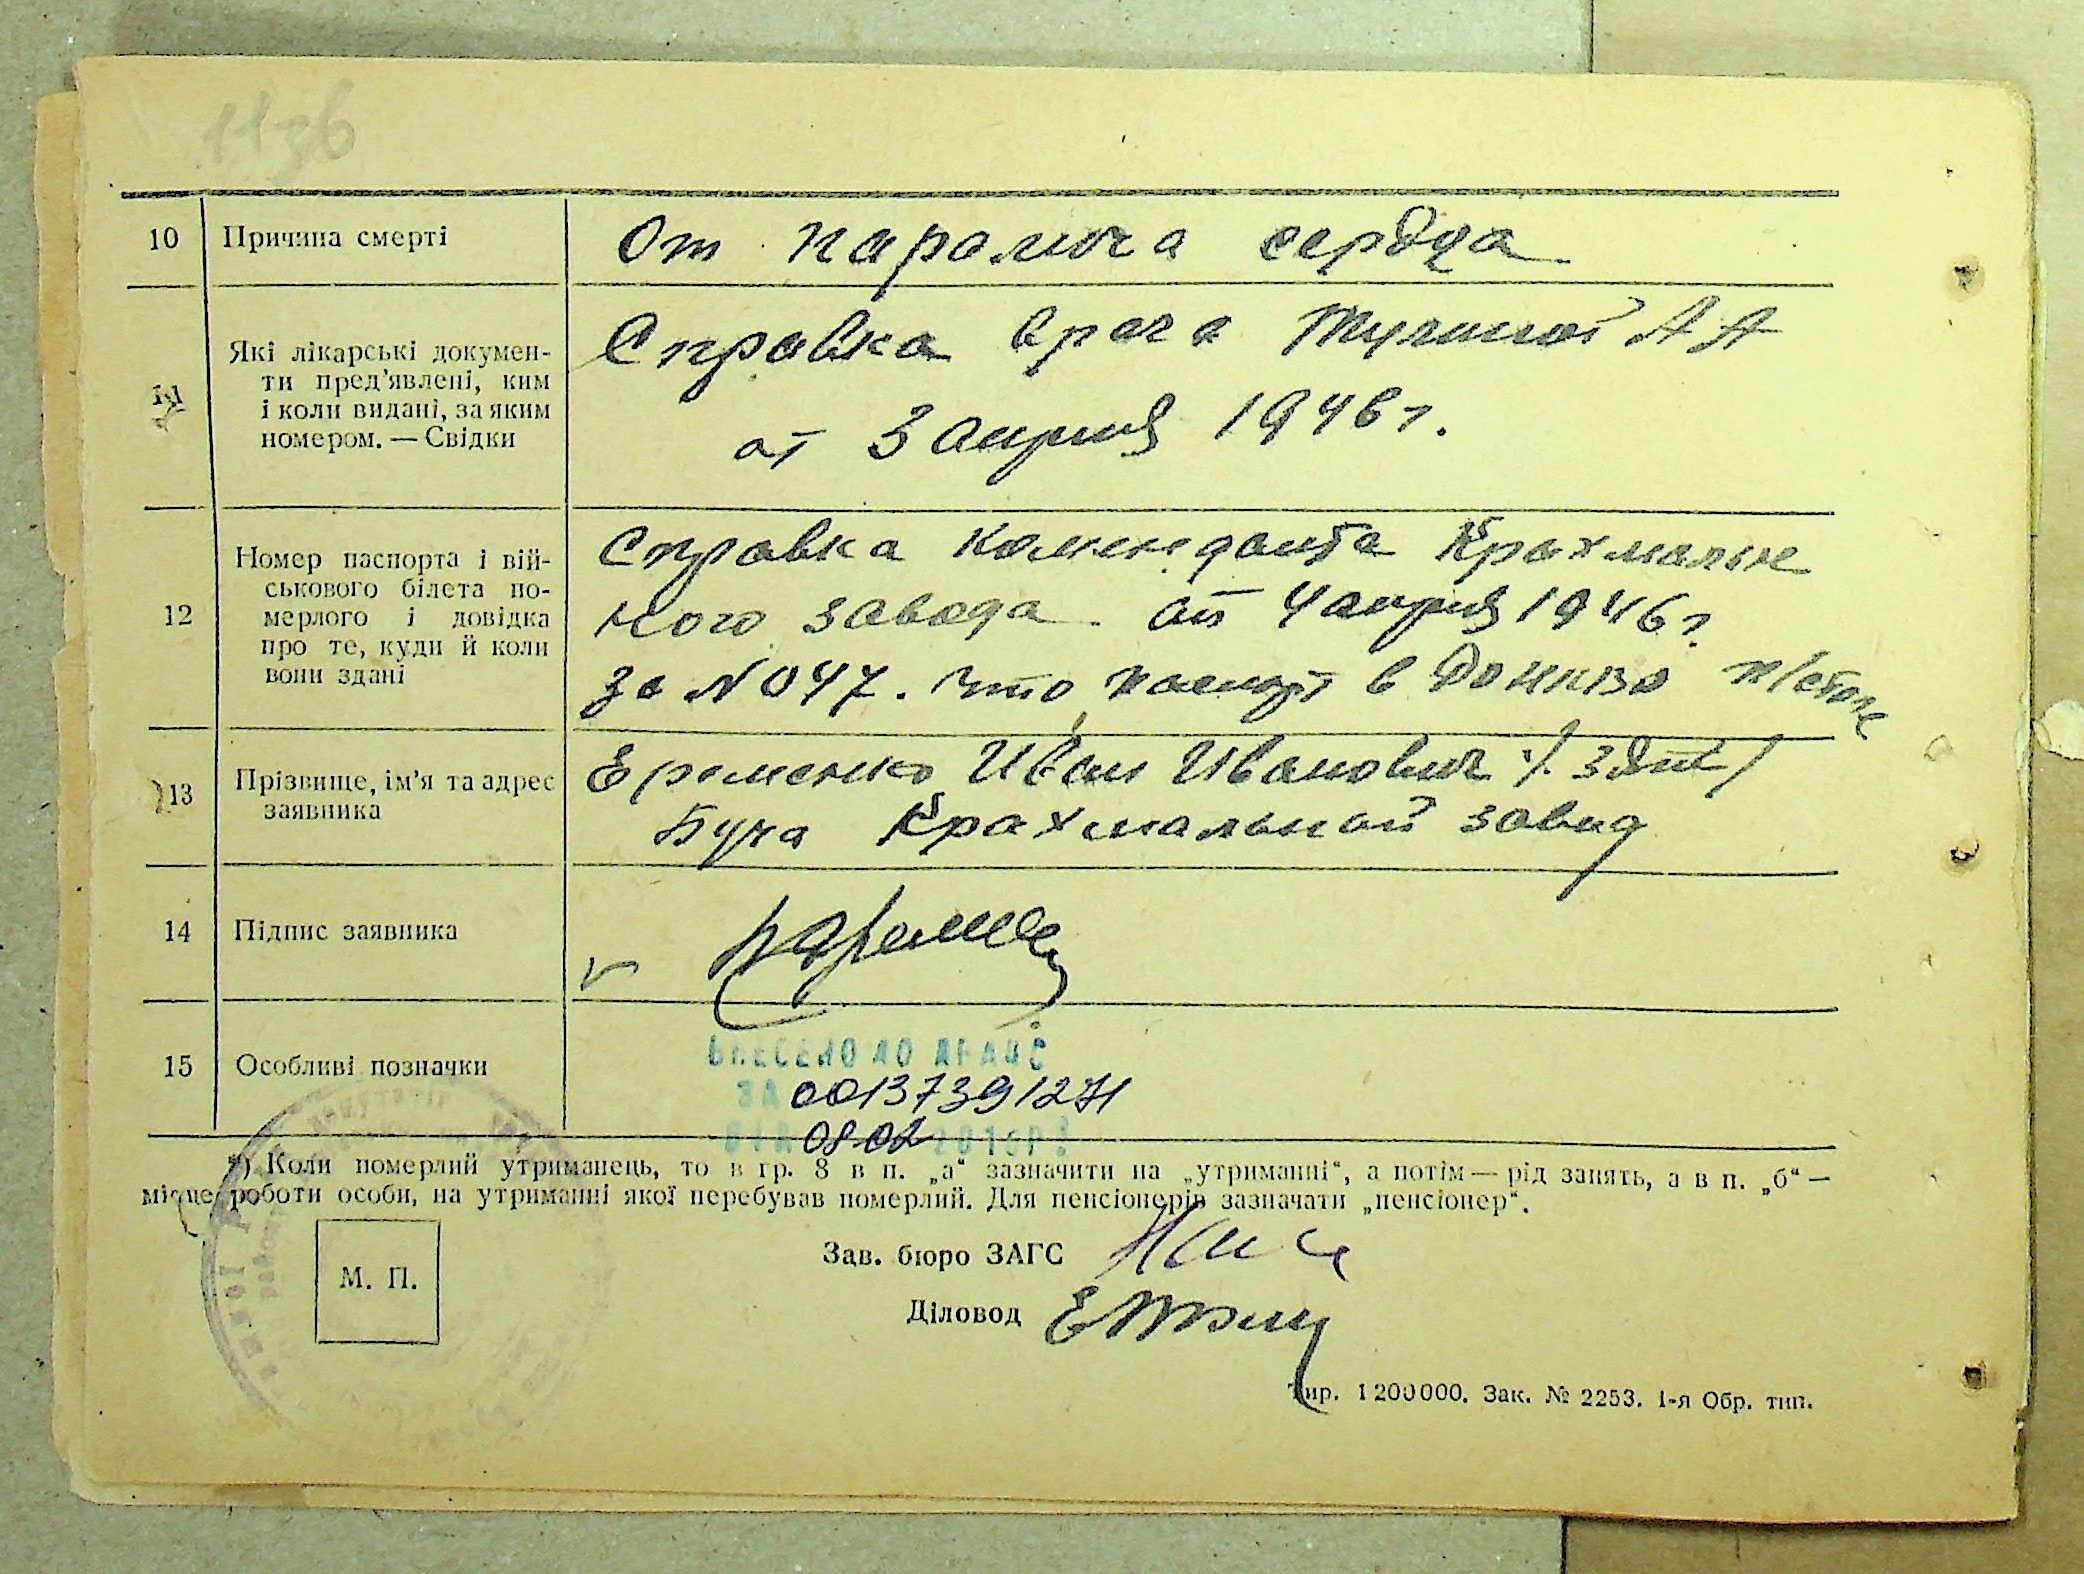 10 Причина смерті От паралича сердца
11 Які лікарські докумен-
ти пред’явлені, ким
і коли видані, за яким
номером. — Свідки
Справка врача А А
от 3 апреля 1946 г.
12 Номер паспорта і вій-
ськового білета по-
мерлого і довідка
про те, куди й коли
вони здані
Справка коменданта Крахмальн
ного завода от 4 апреля 1946 г.
за N 047. что паспорт в
13 Прізвище, ім’я та адрес
заявника
Еременко Иван Иванович / зять /
Буча Крахмальный завод
14 Підпис заявника
15 Особливі позначки
ВНЕСЕНО ДО ДРАЦС
ЗА 00137391271
08.02
*) Коли померлий утриманець, то в гр. 8 в п. „а“ зазначити на „утриманні“, а потім — рід занять, а в п. „б“ —
місце роботи особи, на утриманні якої перебував померлий. Для пенсіонерів зазначати „пенсіонер“.
Зав. бюро ЗАГС
М. П.
Діловод
Тир. 1 200 000. Зак. № 2253. 1-я Обр. тип.